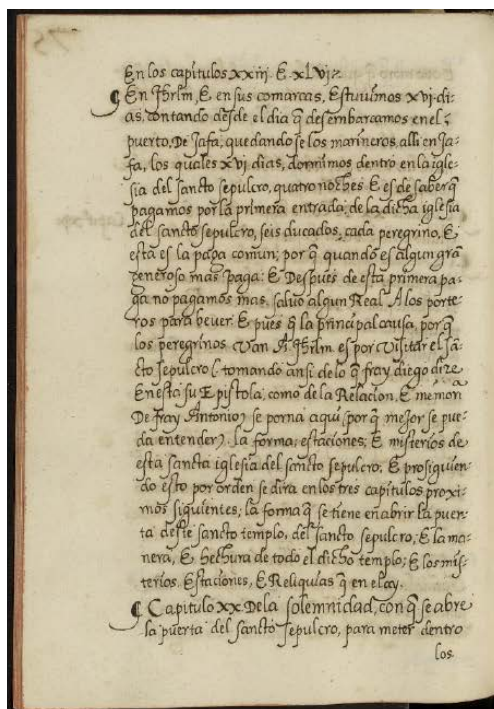 En los capitulos xxiij. E. xlvi.
¶ En Jhrlm, E en sus comarcas, Estuuimos xvi. di-
as, contando desde el dia q̃ desembarcamos en el
puerto, De Jafa; quedando se los marineros, alli en Ja-
fa, los quales xvi dias, dormimos dentro en la igle-
sia del sancto sepulcro, quatro noches. E es de saber q̃
pagamos por la primera entrada; de la dicha iglesia
del sancto sepulcro, seis ducados, cada peregrino, E
esta es la paga comun; por q̃ quando es algun grã
generoso mas paga: E Despues de esta primera pa-
ga no pagamos mas, saluo algun Real A los porte-
ros para bever. E pues q̃ la principal causa, por q̃
los peregrinos Van A. Jhrlm. es por Visitar el sã-
cto sepulcro (. tomando ansi. de lo q̃ fray diego dize
En esta su Epistola; como de la Relacion, E memoria
De fray Antonio) se porna aqui (por q̃ mejor se pue-
da entender). la forma; estaciones; E misterios de
esta sancta iglesia del sancto sepulcro, E prosiguien-
do esto por orden se dira en los tres capitulos proxi-
mos siguientes; la forma q̃ se tiene en abrir la puer-
ta deste sancto templo, del sancto sepulcro; E la ma-
nera, E hechura de todo el dicho templo; E los mis-
terios. Estaciones, E Reliquias q̃ en el ay.
¶ Capitulo XX De la solemnidad, con q̃ se abre
la puerta del sancto Sepulcro, para meter dentro
los